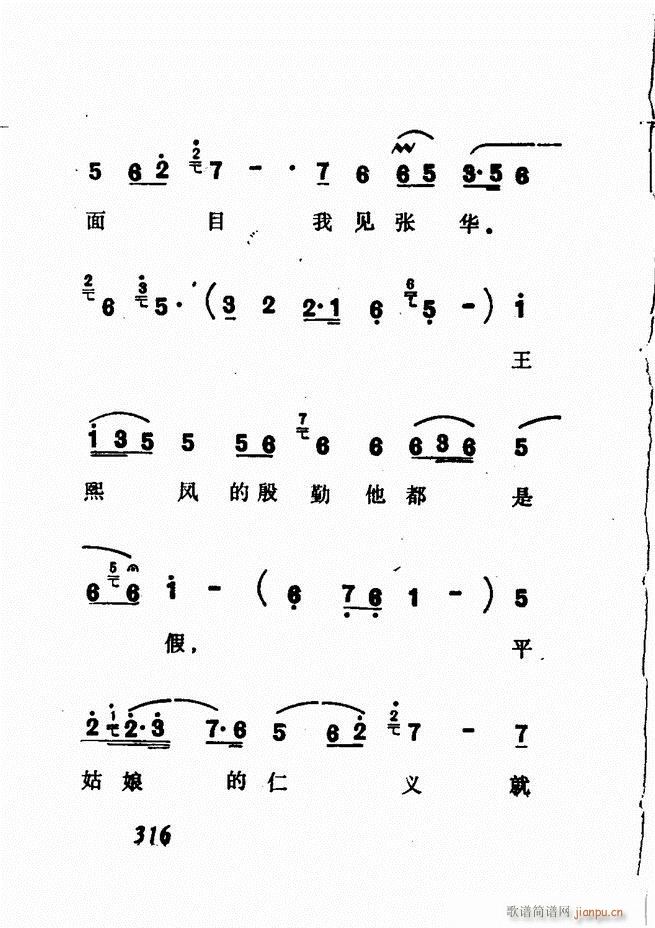 5 6 2 2 7 - · 7 6 6 5 3·5 6
面 目 我见张 华.
2 6 3 5· ( 3 2 2·1 6 6 5 - ) 1
王
1 3 5 5 5 6 7 6 6 6 3 6 5
熙 凤的殷勤他都 是
6 5 6 1 - ( 6 7 6 1 - ) 5
假, 平
2 1 2·3 7·6 5 6 2 2 7 - 7
姑娘 的仁 义 就
316
歌谱简谱网 jianpu.cn